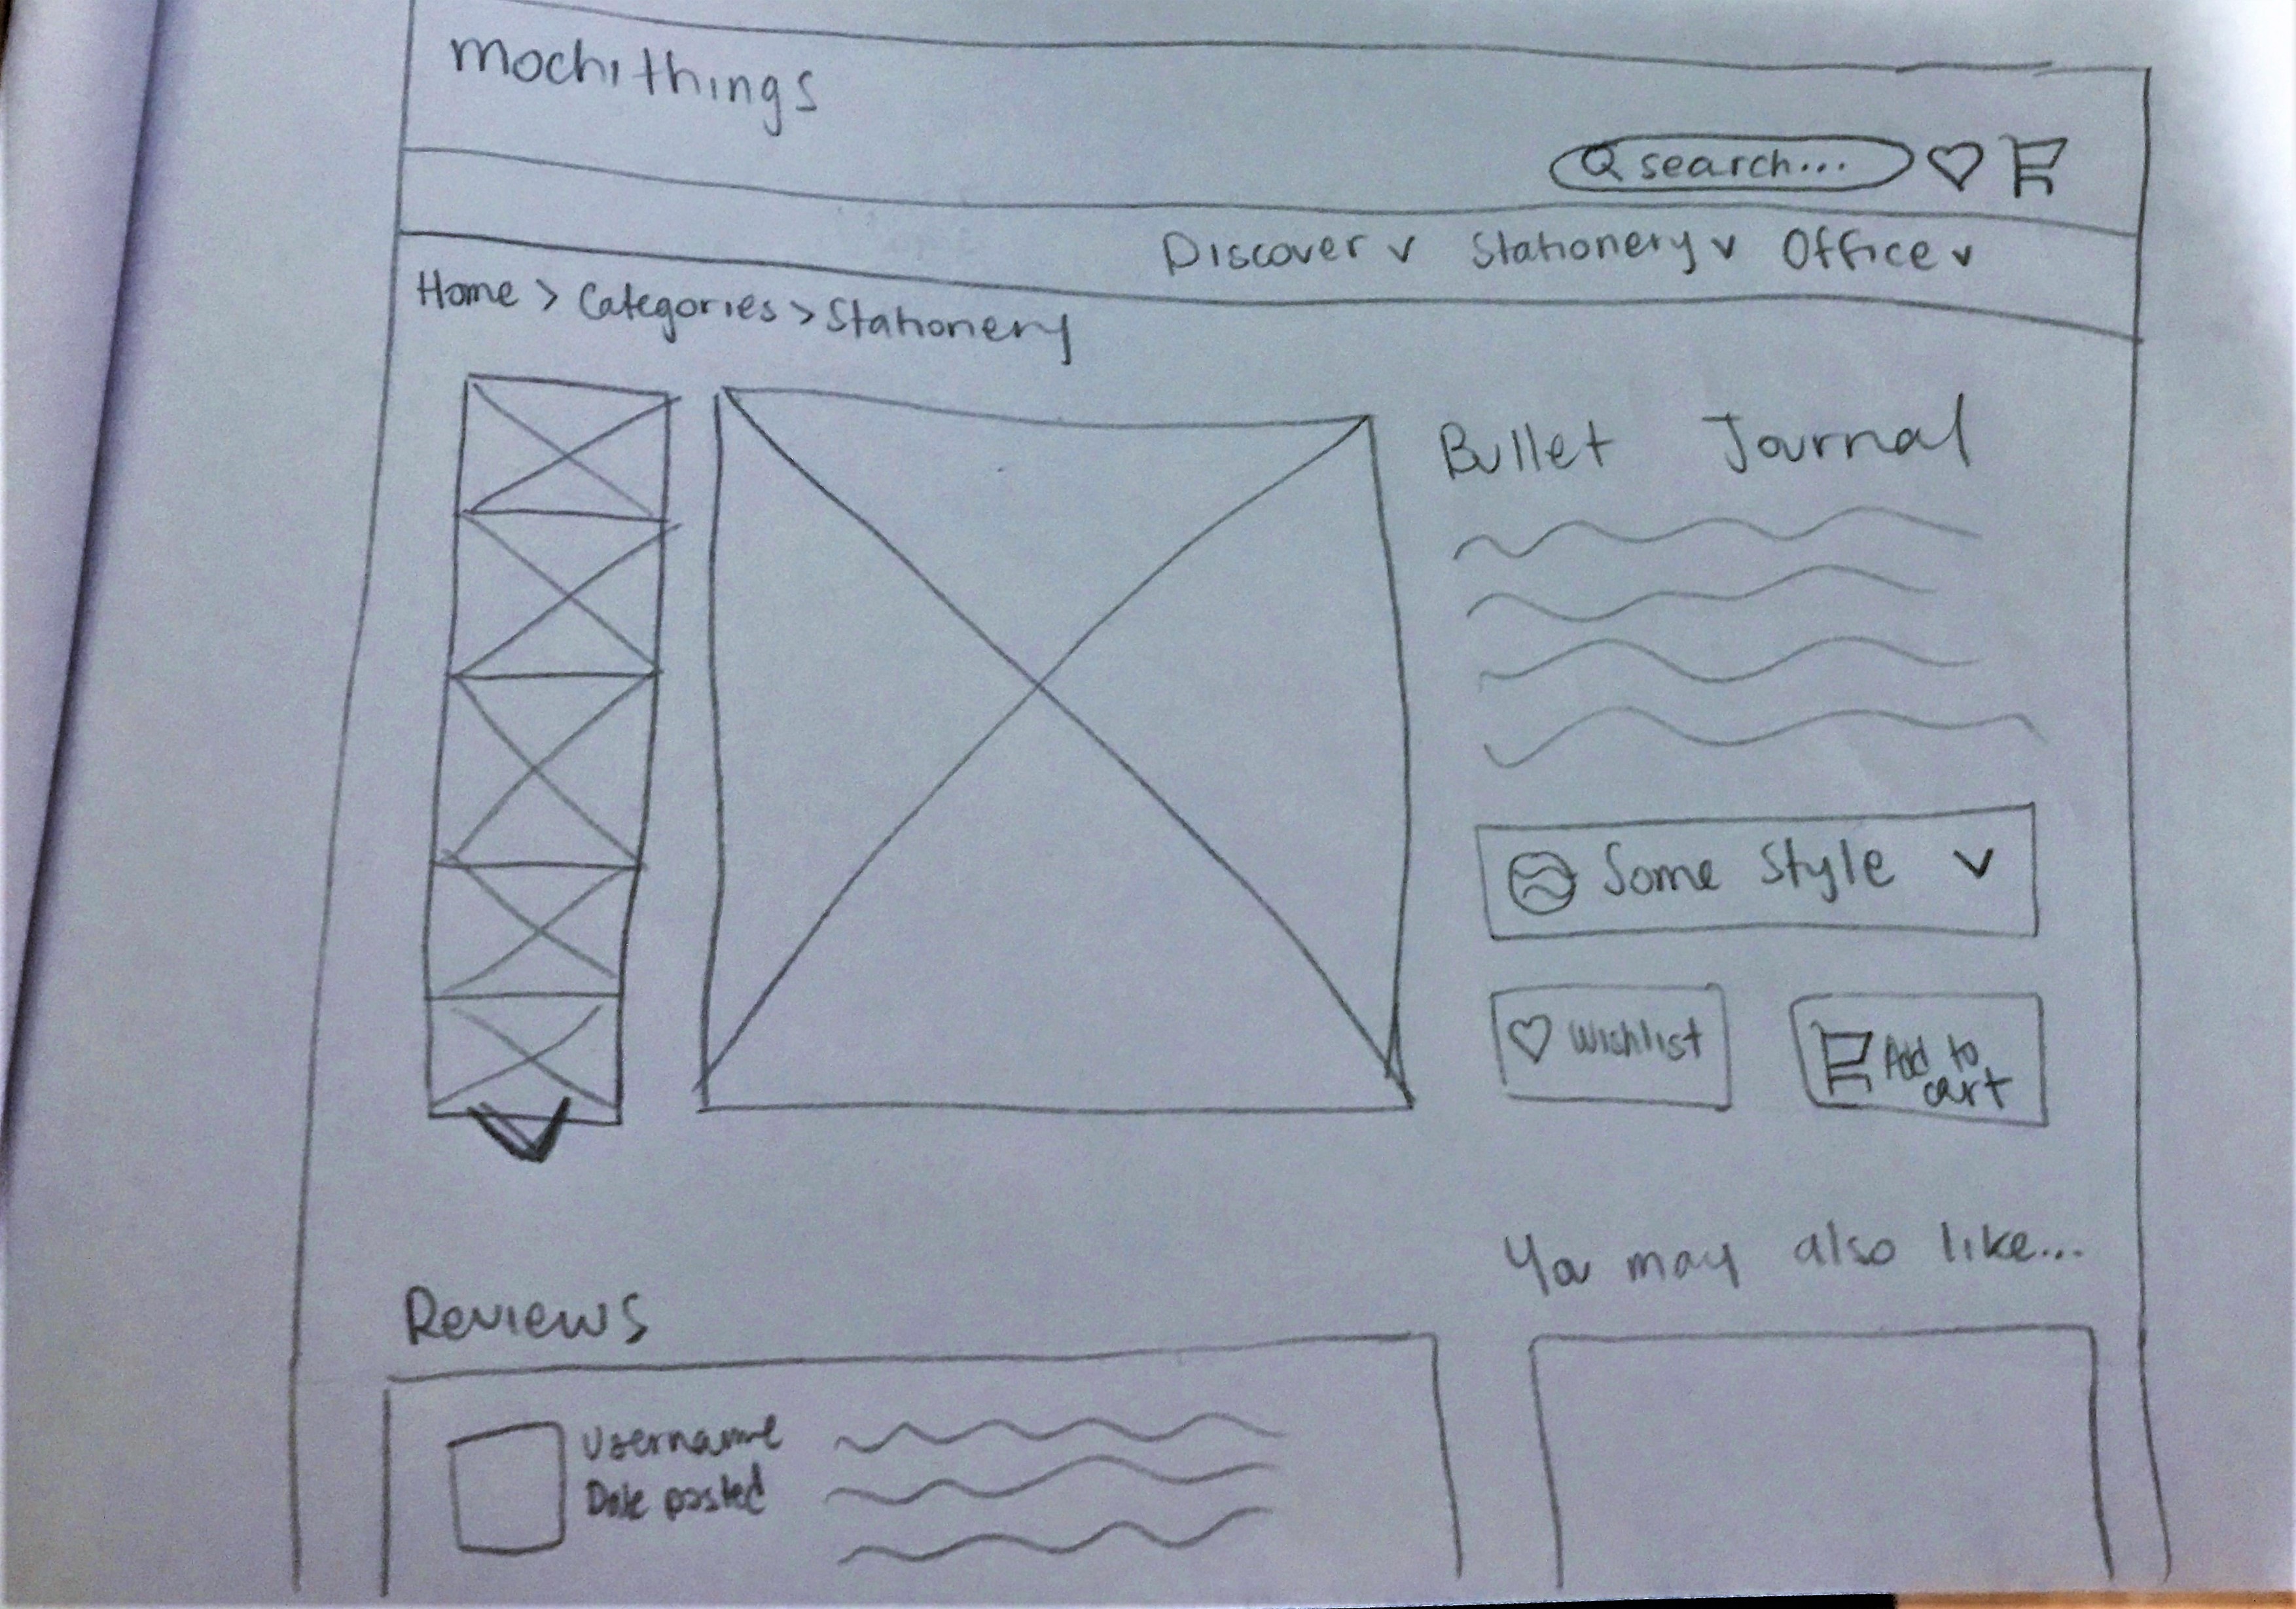 mochithings
search...
Discover v Stationery v Office v
Home > Categories > Stationery
Bullet Journal
Some Style v
Wishlist
Add to
cart
You may also like...
Reviews
Username
Date posted